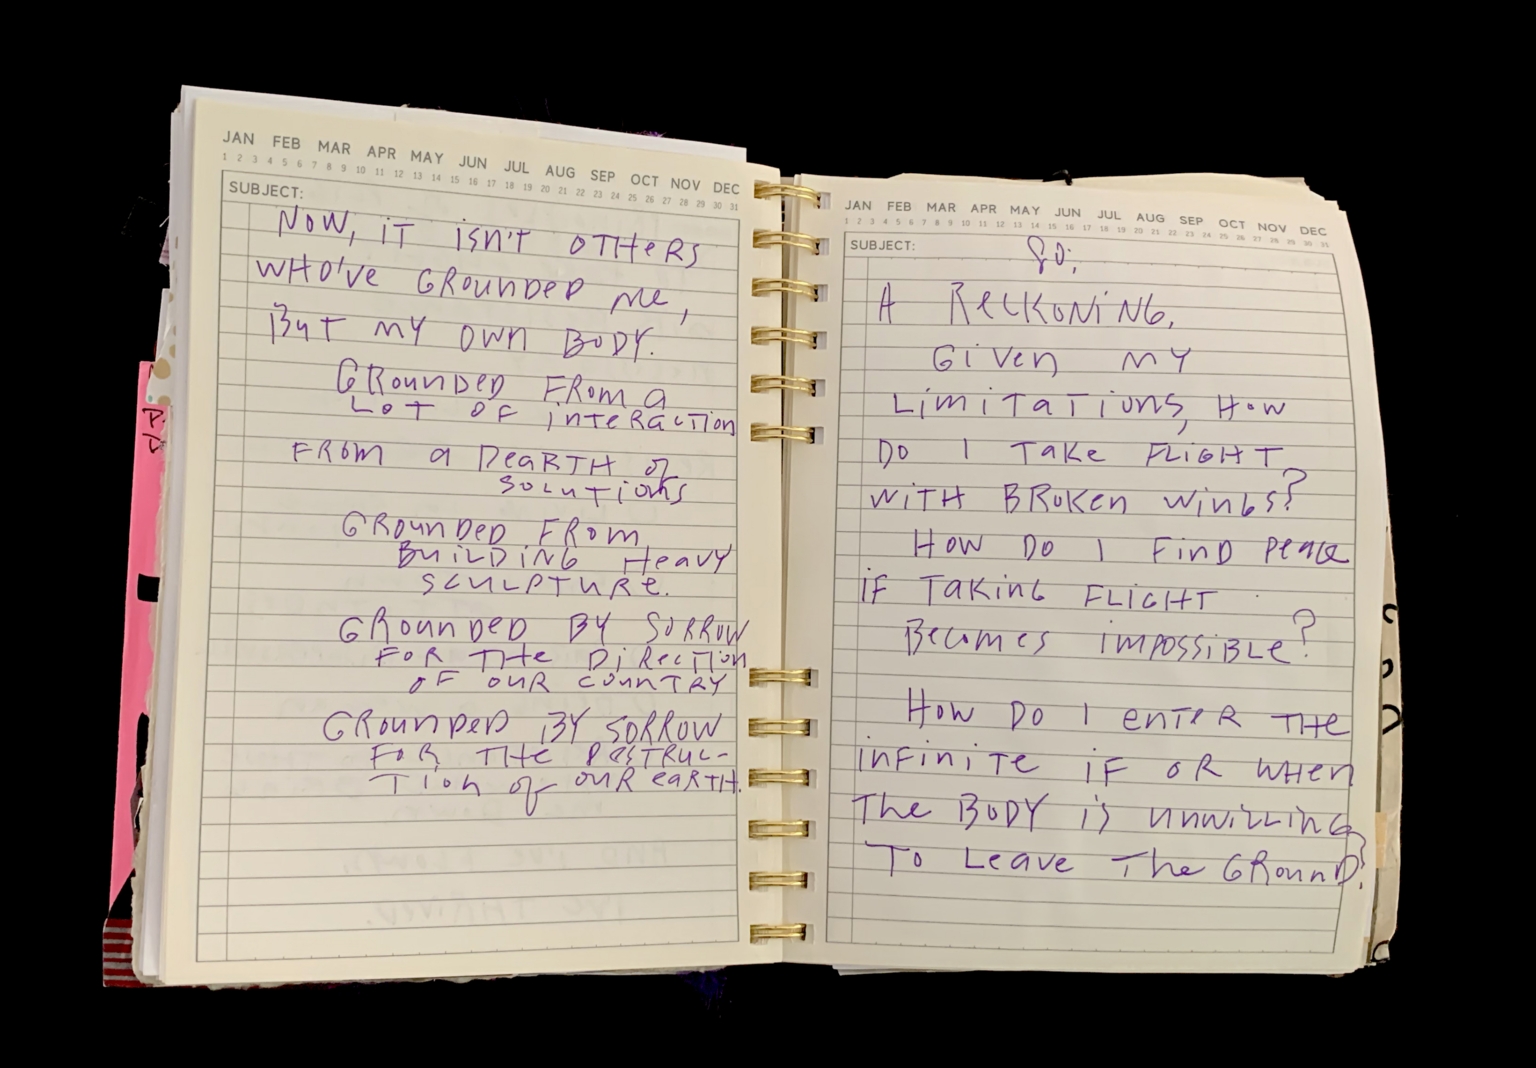 JAN FEB MAR APR MAY JUN JUL AUG SEP OCT NOV DEC
1 2 3 4 5 6 7 8 9 10 11 12 13 14 15 16 17 18 19 20 21 22 23 24 25 26 27 28 29 30 31
SUBJECT:
NOW, iT isn'T OTHeRS
WHO'Ve GROUNDED me,
BuT mY OWn BODY.
GROunDeD FRom a
LOT OF inTeRacTion
FROm a DeaRTH of
SOLuTions
GROunDeD FRom
BuiLDiNG Heavy
SCuLPTuRe.
GROunDeD BY SORROW
FOR THe DiRecTion
OF OuR COunTRY
GROunDeD BY SORROW
FOR THe DesTRuc-
Tion of OuR eaRTH.
JAN FEB MAR APR MAY JUN JUL AUG SEP OCT NOV DEC
1 2 3 4 5 6 7 8 9 10 11 12 13 14 15 16 17 18 19 20 21 22 23 24 25 26 27 28 29 30 31
SUBJECT:
So;
A ReCKONiNG.
Given mY
LimiTaTions, HOW
DO I TaKe FLiGHT
WiTH BROKen WinGs?
HOW DO I FinD peace
iF TaKinG FLiGHT
Becomes impossiBLe?
HOW DO I enTeR THe
inFiniTe iF OR WHen
THe BODY is unwiLLinG
To Leave The GRounD?